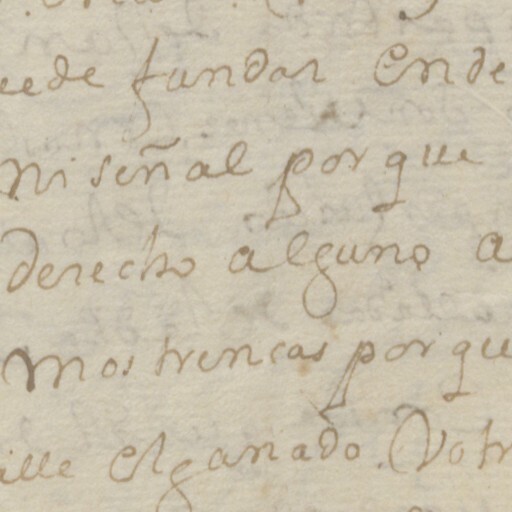 uede fundar En de
ni señal por que
derecho alguno a
mostrencas por qu
ille El ganado. Votr